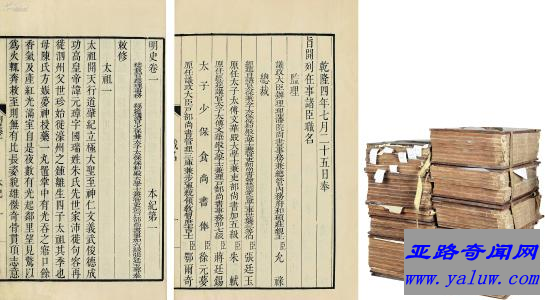 乾隆四年七月二十五日奉
旨開列在事諸臣職名
監理
議政大臣辦理理藩院尚書事務兼總管內務府和碩莊親王臣允祿
總裁
張廷玉
朱軾
蔣廷錫
太子少保食尚書俸臣徐元夢
鄂爾奇
明史卷一 本紀第一
敕修
太祖一
太祖開天行道肇紀立極大聖至神仁文義武俊德成
功高皇帝諱元璋字國瑞姓朱氏先世家沛徙句容再
徙泗州父世珍始徙濠州之鍾離生四子太祖其季也
母陳氏方娠夢神授藥一丸置掌中有光吞之寤口餘
香氣及產紅光滿室自是夜數有光起鄰里望見驚以
為火輒奔救至則無有比長姿貌雄傑奇骨貫頂志意
亚路奇闻网
www.yaluw.com